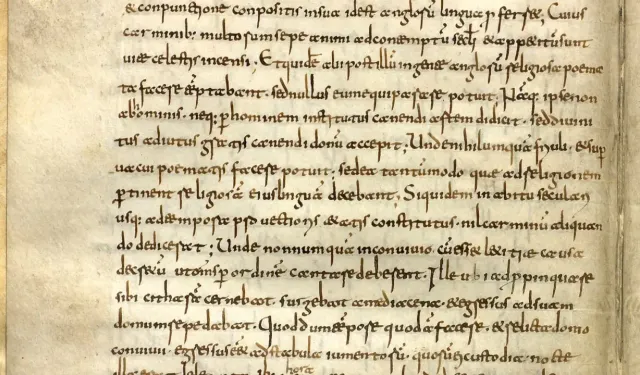 & conpunctione conpositis insua idest anglorū lingua pferr&; Cuius
carminib; multorum sepe animi adcontemptū scl̄i & appetitū sunt
uitae celestis incensi. Et quidē alii post illū ingente anglorū religiosa poema
ta facere teptabant. sed nullus eum equiparare potuit; Naq; ipse non
abhominib; neq; p hominem institutus canendi artem didicit. sed diuini
tus adiutus gratis canendi donū accepit; Unde nihil umquā friuoli. & sup
uacui poematis facere potuit. sed ea tantummodo quae ad religionem
ptinent religiosā eius linguā decebant; Siquidem in abitu seculari
usq; ad tempora puectioris aetatis constitutus. nil carminū aliquan
do didicerat; Unde non numquā in conuiuio. cū ess& letitiae causa
decretū ut omnes per ordinē cantare deberent. Ille ubi adppinquare
sibi citharā cernebat. surgebat a media cena. & egressus ad suam
domum repedabat. Quod dum tempore quodā facer&. & relicta domo
conuiuii. egressus ess& ad stabula iumentorū. quorū ei custodia nocte
hora